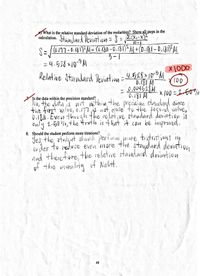 What is the relative standard deviation of the molarities? Show all steps in the
calculation.
Standard Deviation = S =
S =
3-1
= 4.528 x10⁻³ M
Relative Standard Deviation =
0.181 M
x100 =
x1000
x100
Is the data within the precision standard?
No, the data is not within the precision standard since
the first value, 0.177, is not close to the second value,
0.182. Even though the relative standard deviation is
only 2.50%, the truth is that it can be improved.
8. Should the student perform more titrations?
Yes, the student should perform more titrations in
order to reduce even more the standard deviation
and therefore, the relative standard deviation
of the molarity of NaOH.